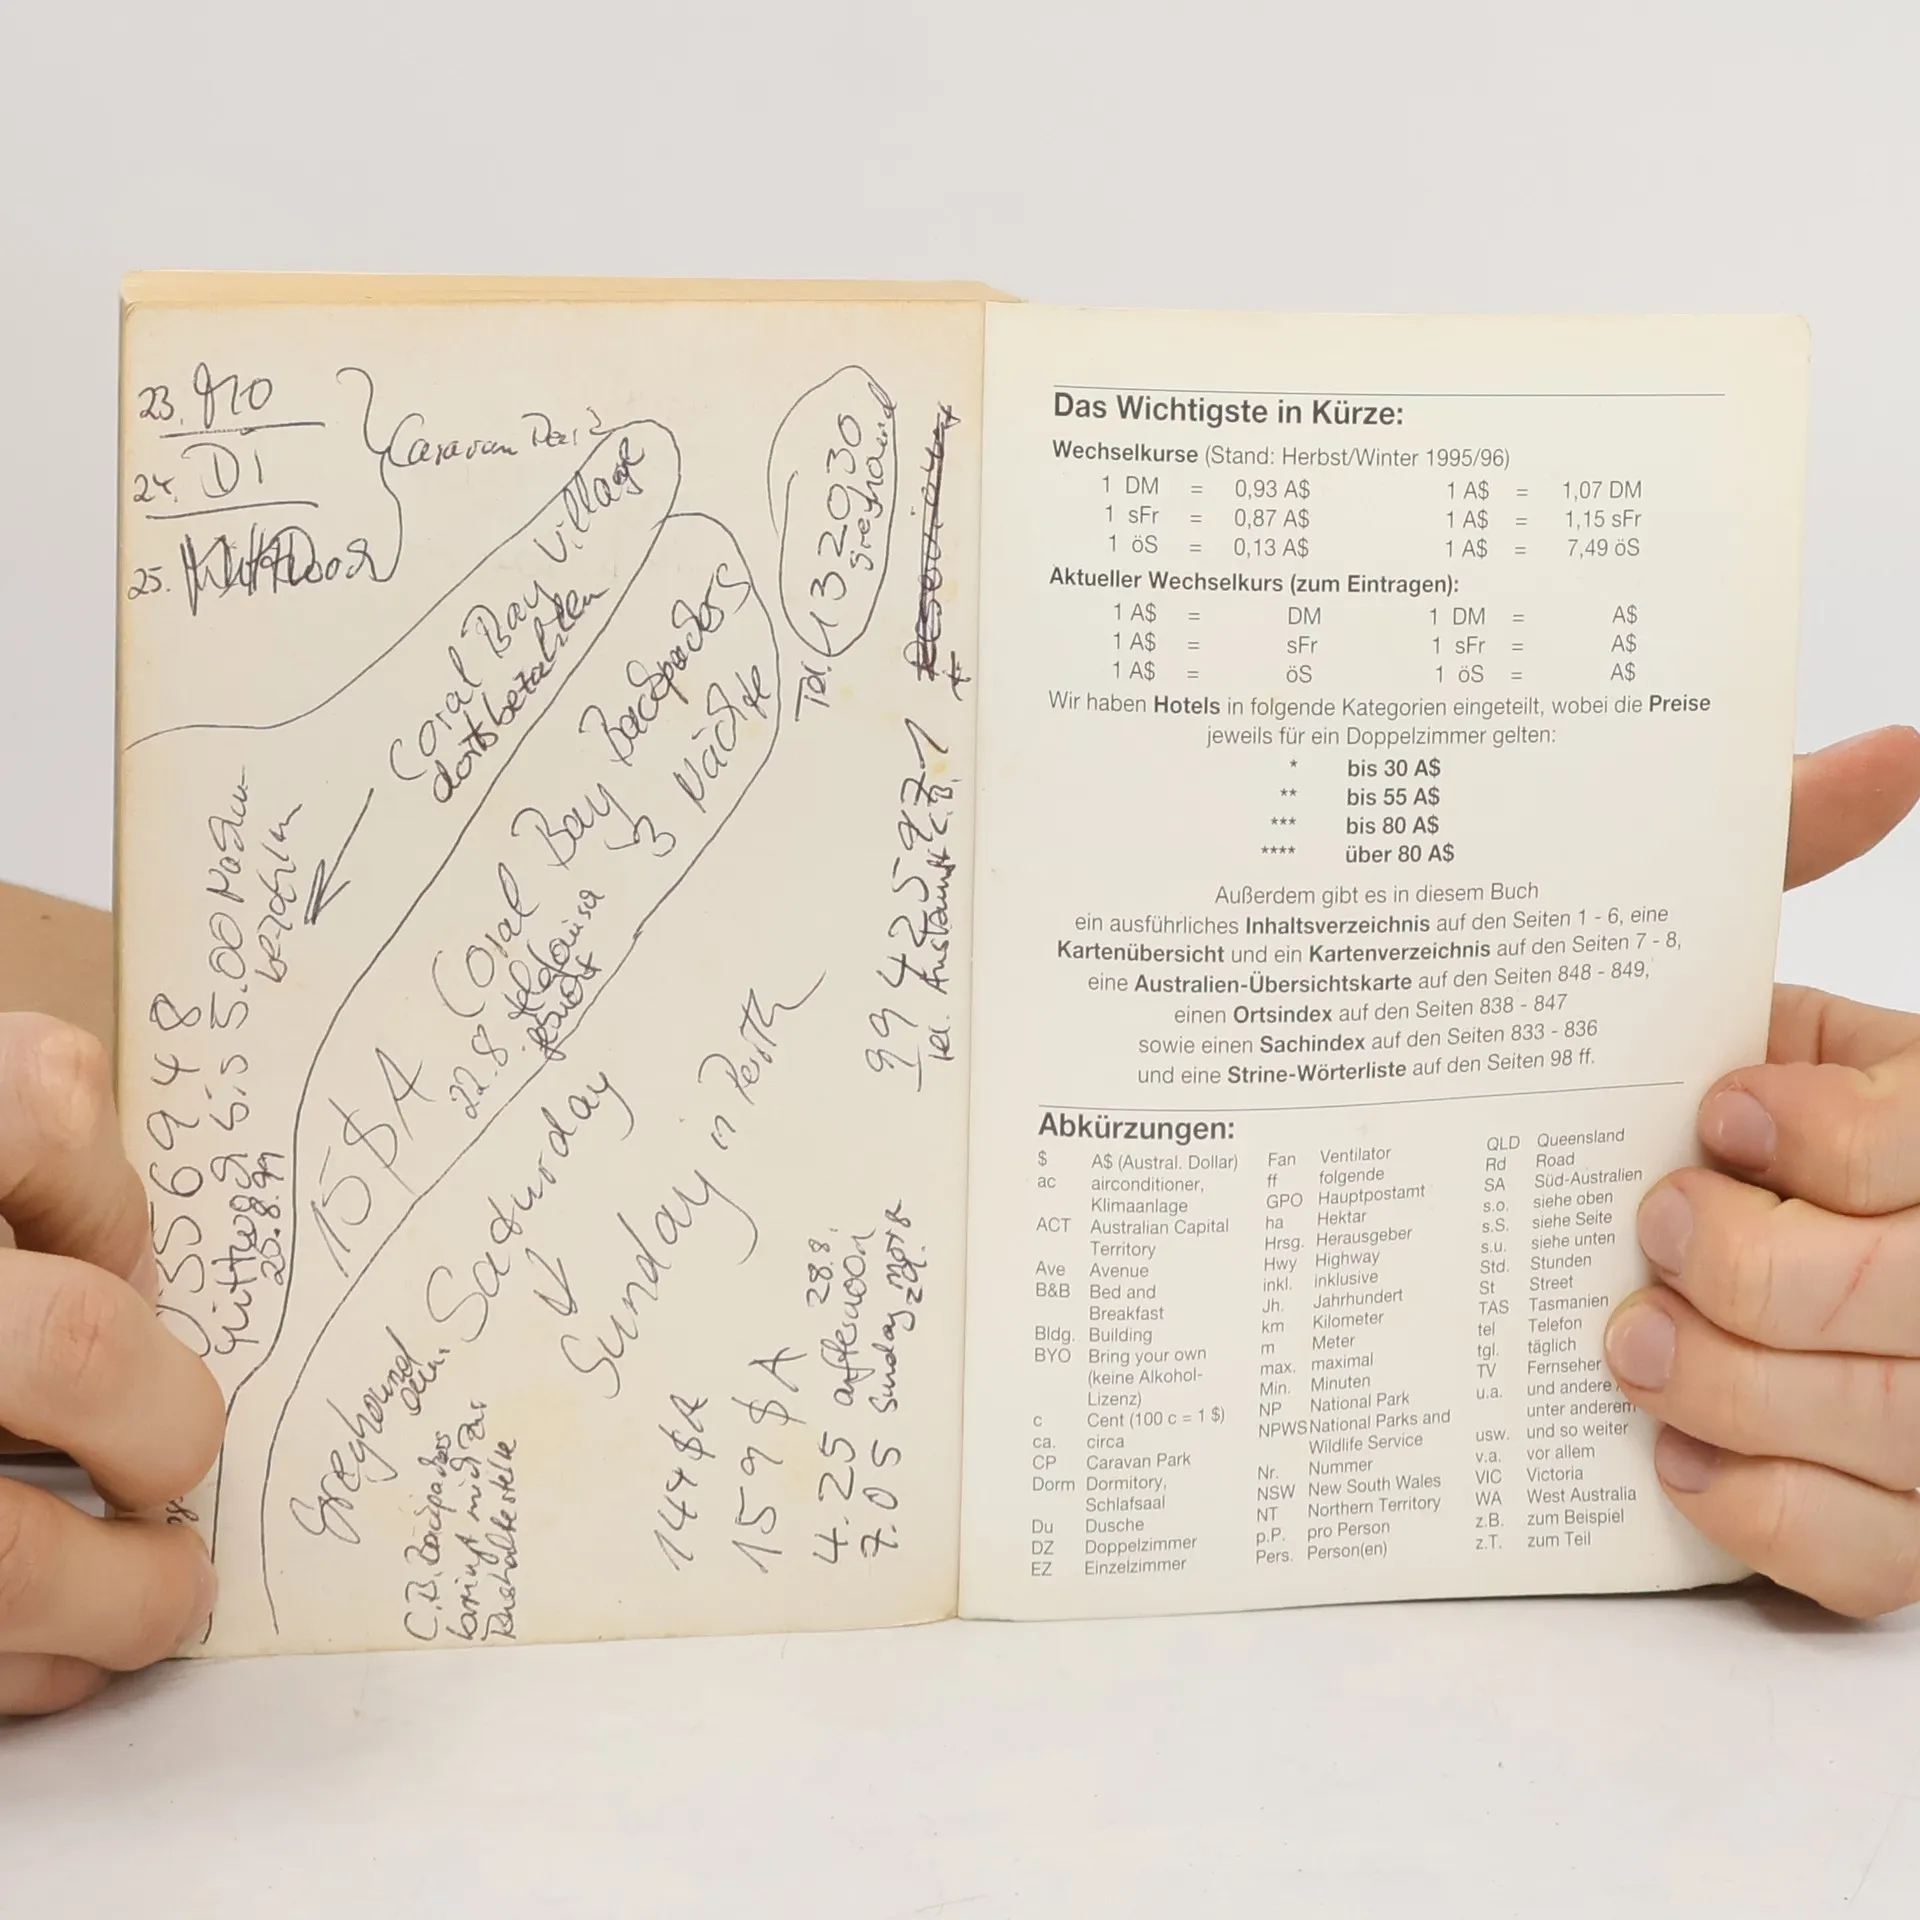 23. Mo
24. Di
25.
Caravan Park
Coral Bay Village
dort bezahlen
Coral Bay Backpackers
3 Nächte
22.8. telefonisch
15 $ A
Tel. 132030
Greyhound
9942597 1
Tel. Auskunft C.B.
556948
bis 5.00 Nachm
bezahlen
25.8.99
Greyhound
Saturday
↓
Sunday in Perth
C.B. Backpackers
bringt mich zur
Bushaltestelle
144 $ A
159 $ A
4.25 afternoon 28.8.
7.05 Sunday
Das Wichtigste in Kürze:
Wechselkurse (Stand: Herbst/Winter 1995/96)
1 DM = 0,93 A$ 1 A$ = 1,07 DM
1 sFr = 0,87 A$ 1 A$ = 1,15 sFr
1 öS = 0,13 A$ 1 A$ = 7,49 öS
Aktueller Wechselkurs (zum Eintragen):
1 A$ = DM 1 DM = A$
1 A$ = sFr 1 sFr = A$
1 A$ = öS 1 öS = A$
Wir haben Hotels in folgende Kategorien eingeteilt, wobei die Preise
jeweils für ein Doppelzimmer gelten:
* bis 30 A$
** bis 55 A$
*** bis 80 A$
**** über 80 A$
Außerdem gibt es in diesem Buch
ein ausführliches Inhaltsverzeichnis auf den Seiten 1 - 6, eine
Kartenübersicht und ein Kartenverzeichnis auf den Seiten 7 - 8,
eine Australien-Übersichtskarte auf den Seiten 848 - 849,
einen Ortsindex auf den Seiten 838 - 847
sowie einen Sachindex auf den Seiten 833 - 836
und eine Strine-Wörterliste auf den Seiten 98 ff.
Abkürzungen:
$ A$ (Austral. Dollar)
ac airconditioner,
Klimaanlage
ACT Australian Capital
Territory
Ave Avenue
B&B Bed and
Breakfast
Bldg. Building
BYO Bring your own
(keine Alkohol-
Lizenz)
c Cent (100 c = 1 $)
ca. circa
CP Caravan Park
Dorm Dormitory,
Schlafsaal
Du Dusche
DZ Doppelzimmer
EZ Einzelzimmer
Fan Ventilator
ff folgende
GPO Hauptpostamt
ha Hektar
Hrsg. Herausgeber
Hwy Highway
inkl. inklusive
Jh. Jahrhundert
km Kilometer
m Meter
max. maximal
Min. Minuten
NP National Park
NPWS National Parks and
Wildlife Service
Nr. Nummer
NSW New South Wales
NT Northern Territory
p.P. pro Person
Pers. Person(en)
QLD Queensland
Rd Road
SA Süd-Australien
s.o. siehe oben
s.S. siehe Seite
s.u. siehe unten
Std. Stunden
St Street
TAS Tasmanien
tel Telefon
tgl. täglich
TV Fernseher
u.a. und andere
unter anderem
usw. und so weiter
v.a. vor allem
VIC Victoria
WA West Australia
z.B. zum Beispiel
z.T. zum Teil